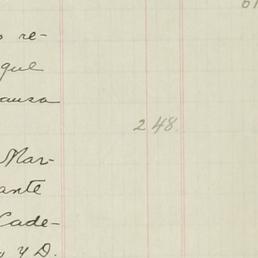 re-
que
ausa
248
Mar-
ante
Cade-
y D.